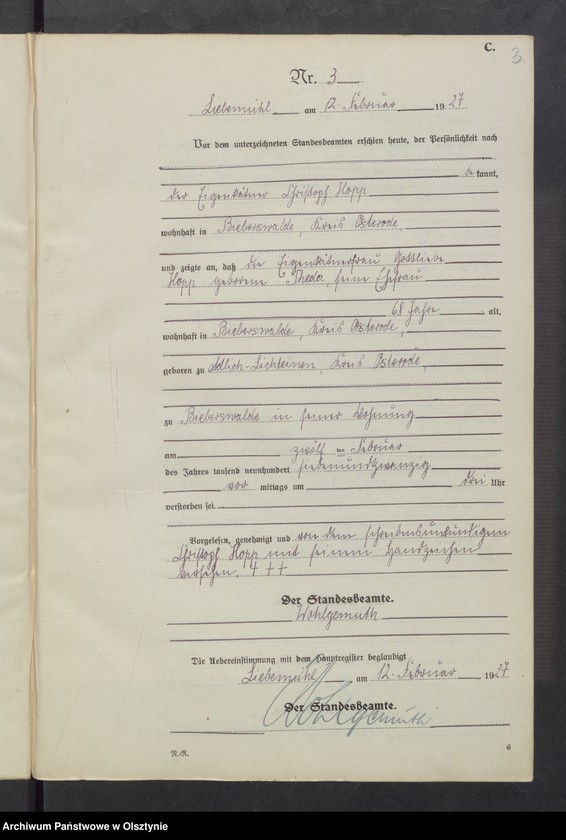 C.
3
Nr. 3
Liebemühl am 12. Februar 1927
Vor dem unterzeichneten Standesbeamten erschien heute, der Persönlichkeit nach
be kannt,
der Eigenkätner Christoph Hopp
wohnhaft in Bieberswalde, Kreis Osterode
und zeigte an, daß die Eigenkätnerfrau Gottliebe
Hopp geborene Theda, seine Ehefrau
68 Jahre alt,
wohnhaft in Bieberswalde, Kreis Osterode,
geboren zu Adlich-Lichteinen, Kreis Osterode,
zu Bieberswalde in seiner Wohnung
am zwölf ten Februar
des Jahres tausend neunhundert siebenundzwanzig
vor mittags um drei Uhr
verstorben sei.
Vorgelesen, genehmigt und von dem schreibensunkundigen
Christoph Hopp mit seinem Handzeichen
versehen. +++
Der Standesbeamte.
Wohlgemuth
Die Uebereinstimmung mit dem Hauptregister beglaubigt
Liebemühl am 12. Februar 1927
Der Standesbeamte.
Wohlgemuth
6
Archiwum Państwowe w Olsztynie